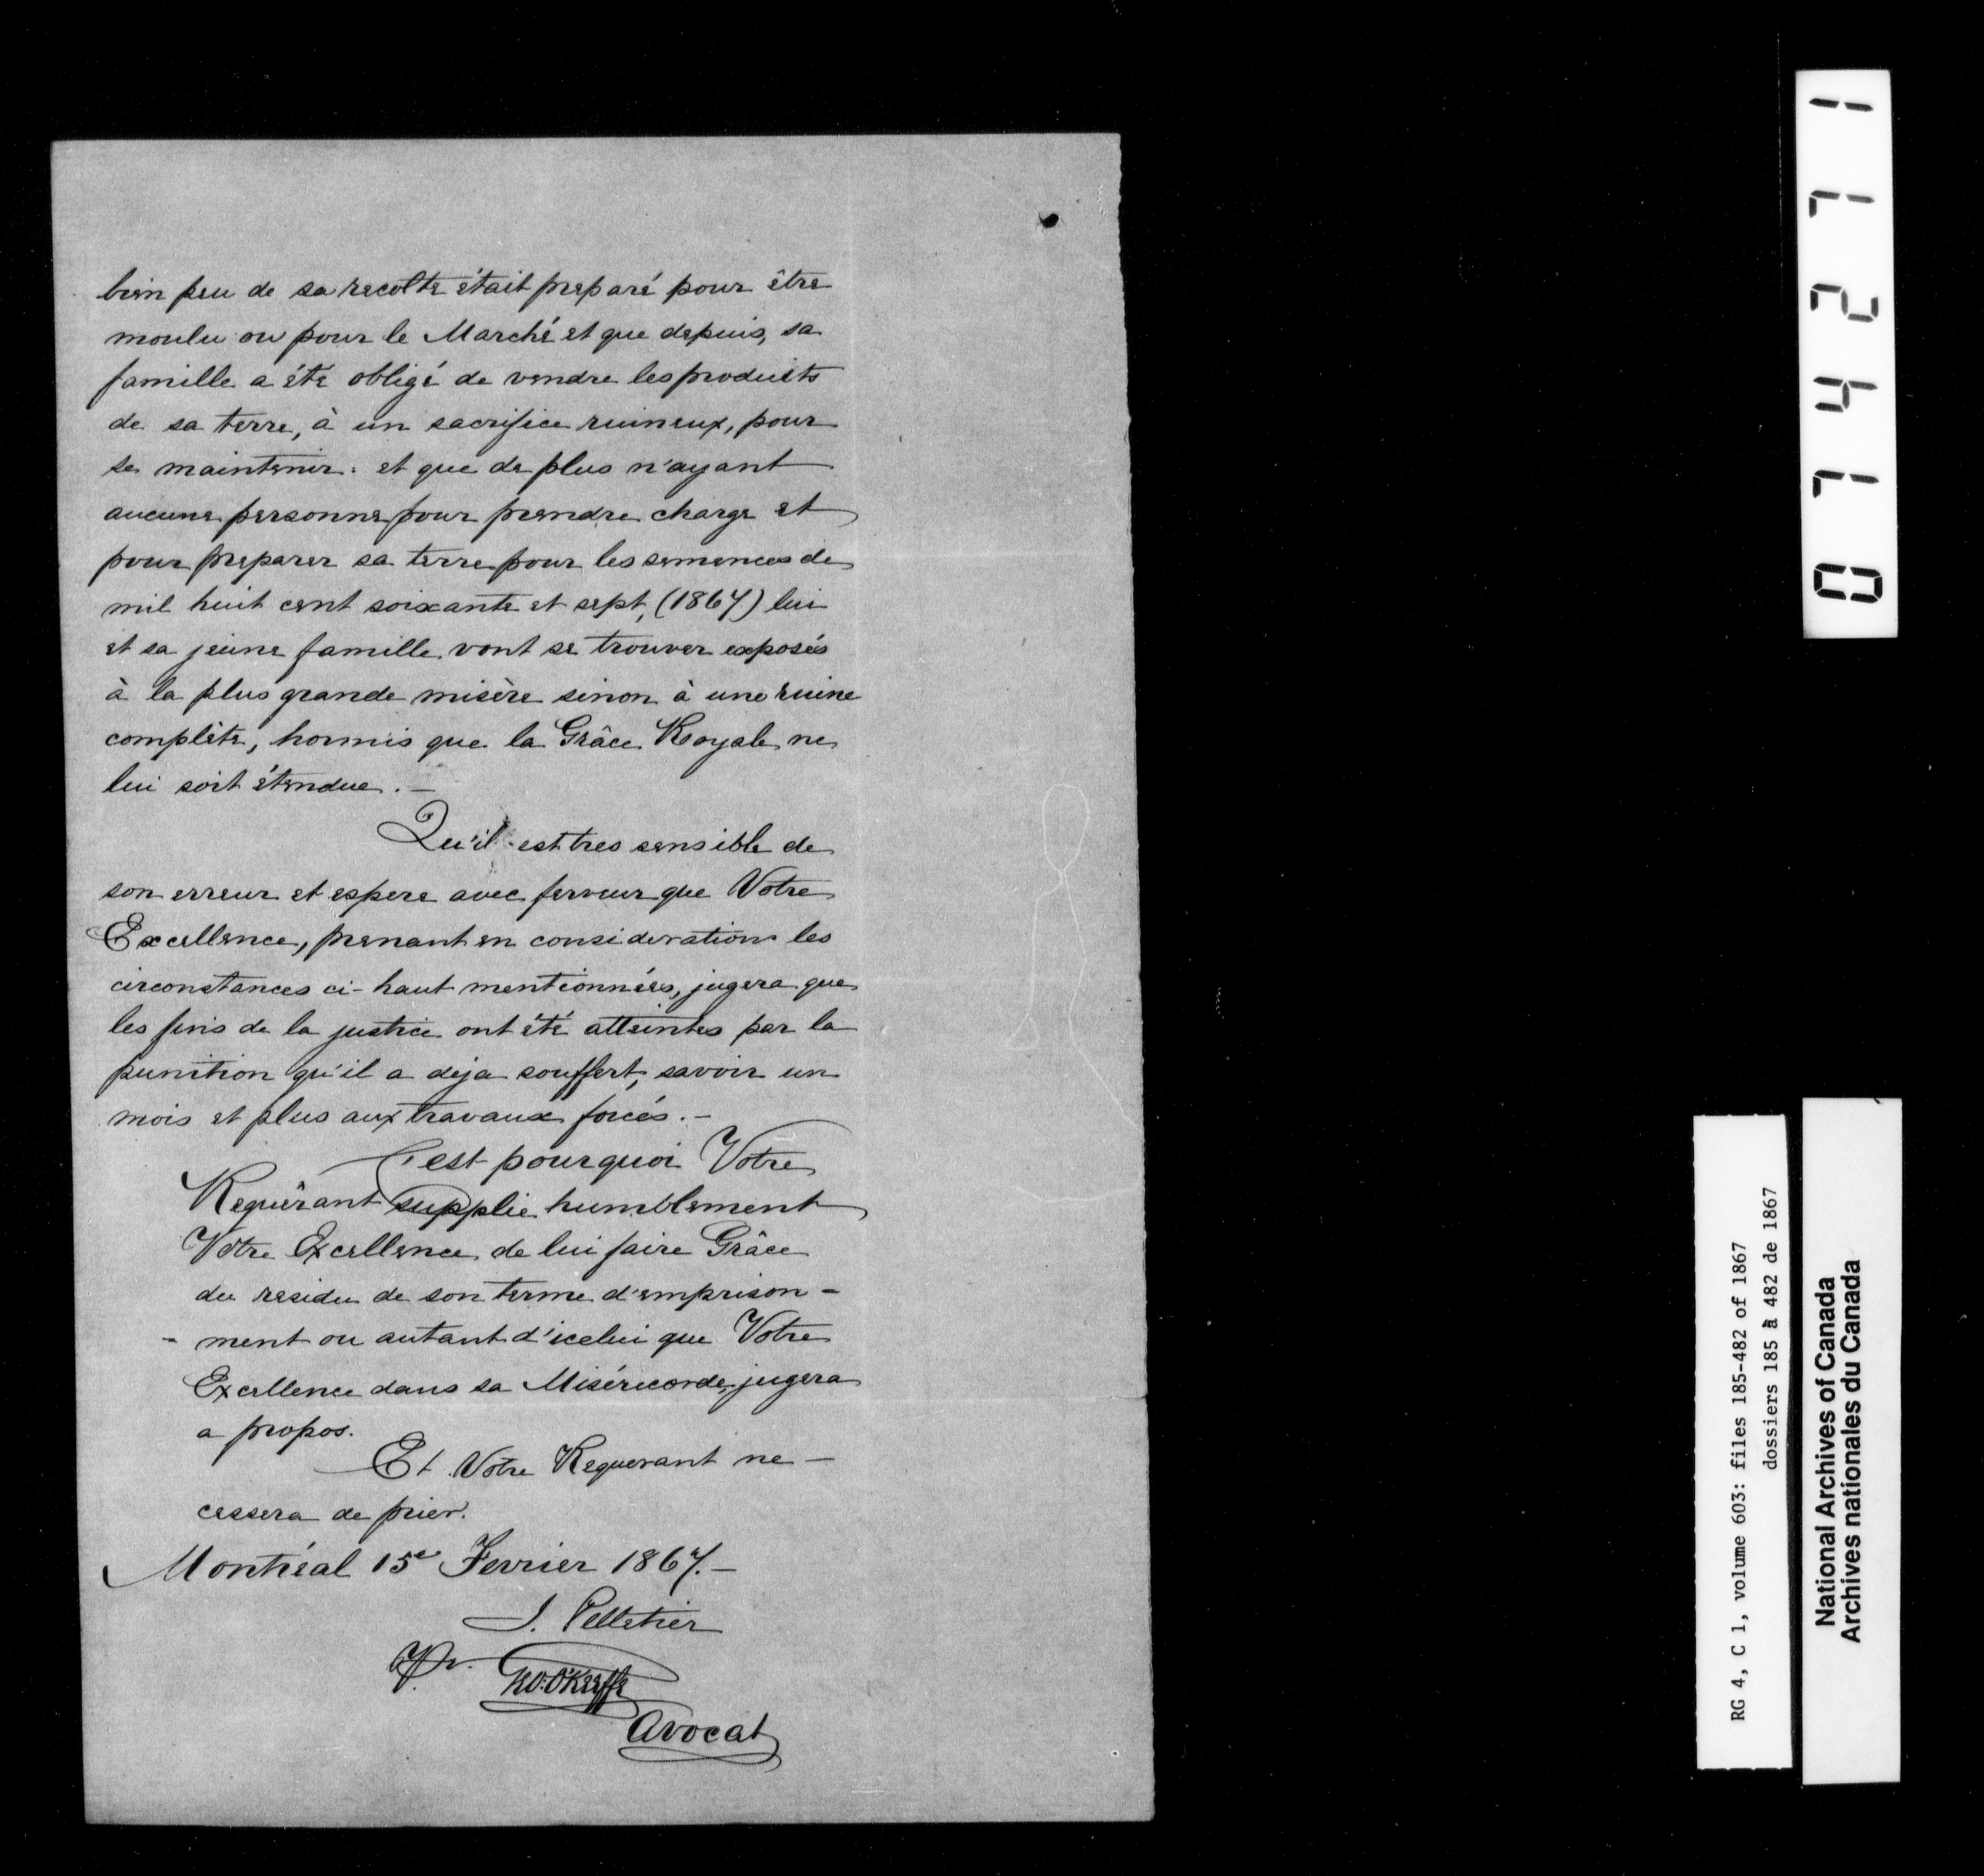 bien peu de sa recolte était preparé pour être
moulu ou pour le Marché et que depuis, sa
famille a été obligé de vendre les produits
de sa terre, à un sacrifice ruineux, pour
se maintenir: et que de plus n'ayant
aucune personne pour prendre charge et
pour preparer sa terre pour les semences de
mil huit cent soixante et sept, (1867) lui
et sa jeune famille vont se trouver exposés
à la plus grande misère sinon à une ruine
complète, hormis que la Grâce Royale ne
lui soit étendue. —
Qu'il est tres sensible de
son erreur et espere avec ferveur que Votre
Excellence, prenant en consideration les
circonstances ci-haut mentionnées, jugera que
les fins de la justice ont été atteintes par la
punition qu'il a deja souffert, savoir un
mois et plus aux travaux forcés. -
C'est pourquoi Votre
Requérant supplie humblement
Votre Excellence de lui faire Grâce
du residu de son terme d'emprison -
- ment ou autant d'icelui que Votre
Excellence dans sa Miséricorde, jugera
a propos.
Et Votre Requerant ne —
cessera de prier.
Montréal 15e Fevrier 1867. —
J. Pelletier
Pr.
O'Keeffe
Avocat
074271
RG 4, C 1, volume 603: files 185-482 of 1867
dossiers 185 à 482 de 1867
National Archives of Canada
Archives nationales du Canada